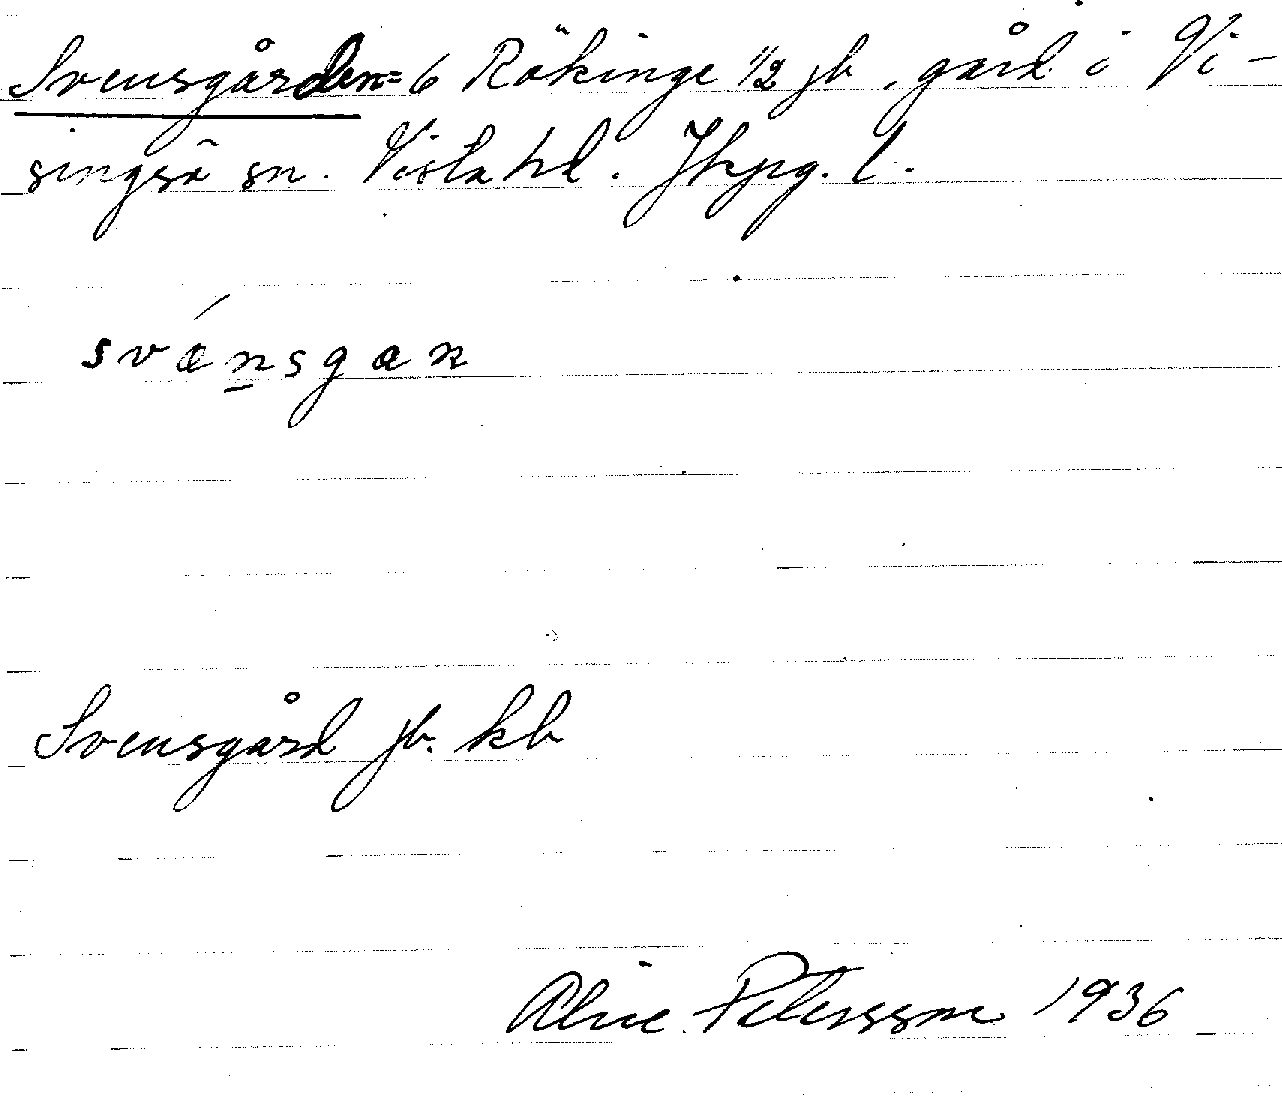 Svensgården = 6 Rökinge 1/2 jb, gård i Vi-
singsö sn. Vista hd. Jkpg. l.
svǽnsgan
Svensgård jb. kb
Aline Petersson 1936